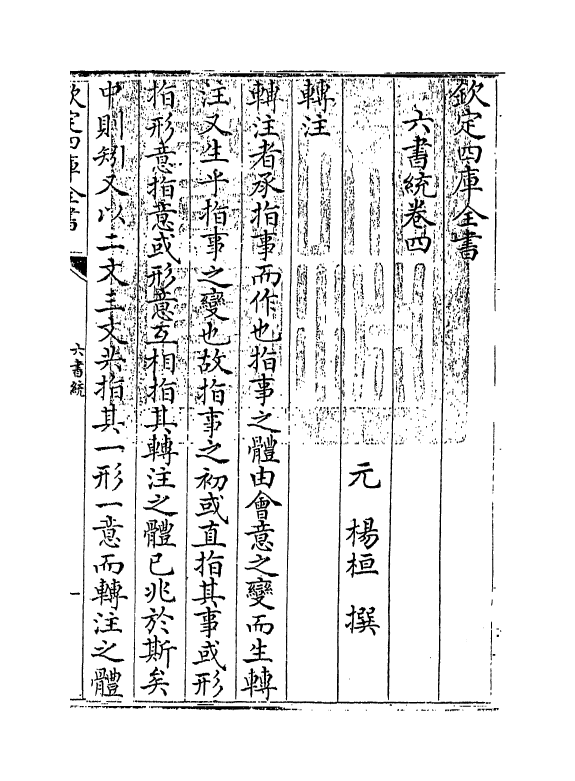 欽定四庫全書
六書統卷四
元 楊桓 撰
轉注
轉注者承指事而作也指事之體由會意之變而生轉
注又生乎指事之變也故指事之初或直指其事或形
指形意指意或形意互相指其轉注之體已兆於斯矣
中則矧又以二文三文共指其一形一意而轉注之體
欽定四庫全書
六書統
一